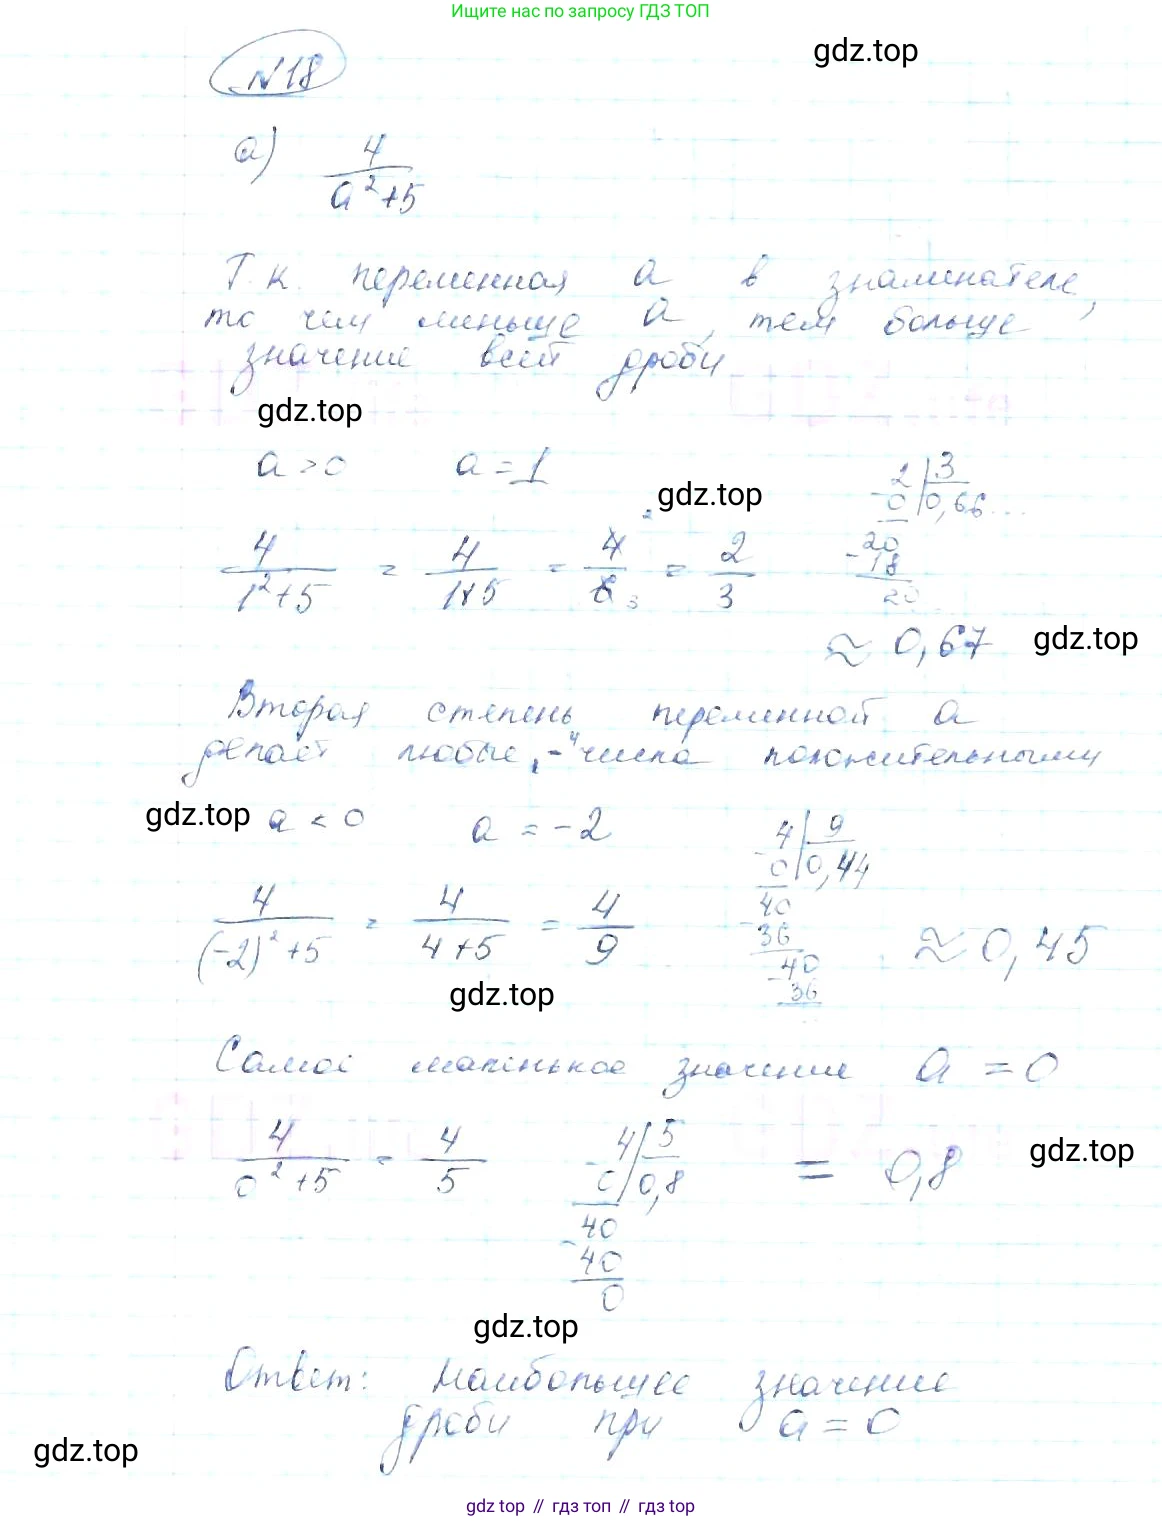 Ищите нас по запросу ГДЗ ТОП
gdz.top
№18
а) 4
a²+5
Т.к. переменная a в знаминателе,
то чем меньше a, тем больше
значение всей дроби
gdz.top
a > 0 a = 1
gdz.top
2 | 3
0 0,66...
20
18
20
4/(1²+5) = 4/(1+5) = 4/6 = 2/3
≈ 0,67 gdz.top
Вторая степень переменной a
делает любые числа положительными
gdz.top a < 0 a = -2
4 | 9
0 0,44
40
36
40
36
4/((-2)²+5) = 4/(4+5) = 4/9 ≈ 0,45
gdz.top
Самое маленькое значение a = 0
4/(0²+5) = 4/5
4 | 5
0 0,8
40
40
0
= 0,8 gdz.top
gdz.top
Ответ: Наибольшее значение
дроби при a = 0
gdz.top
gdz top // гдз топ // гдз top